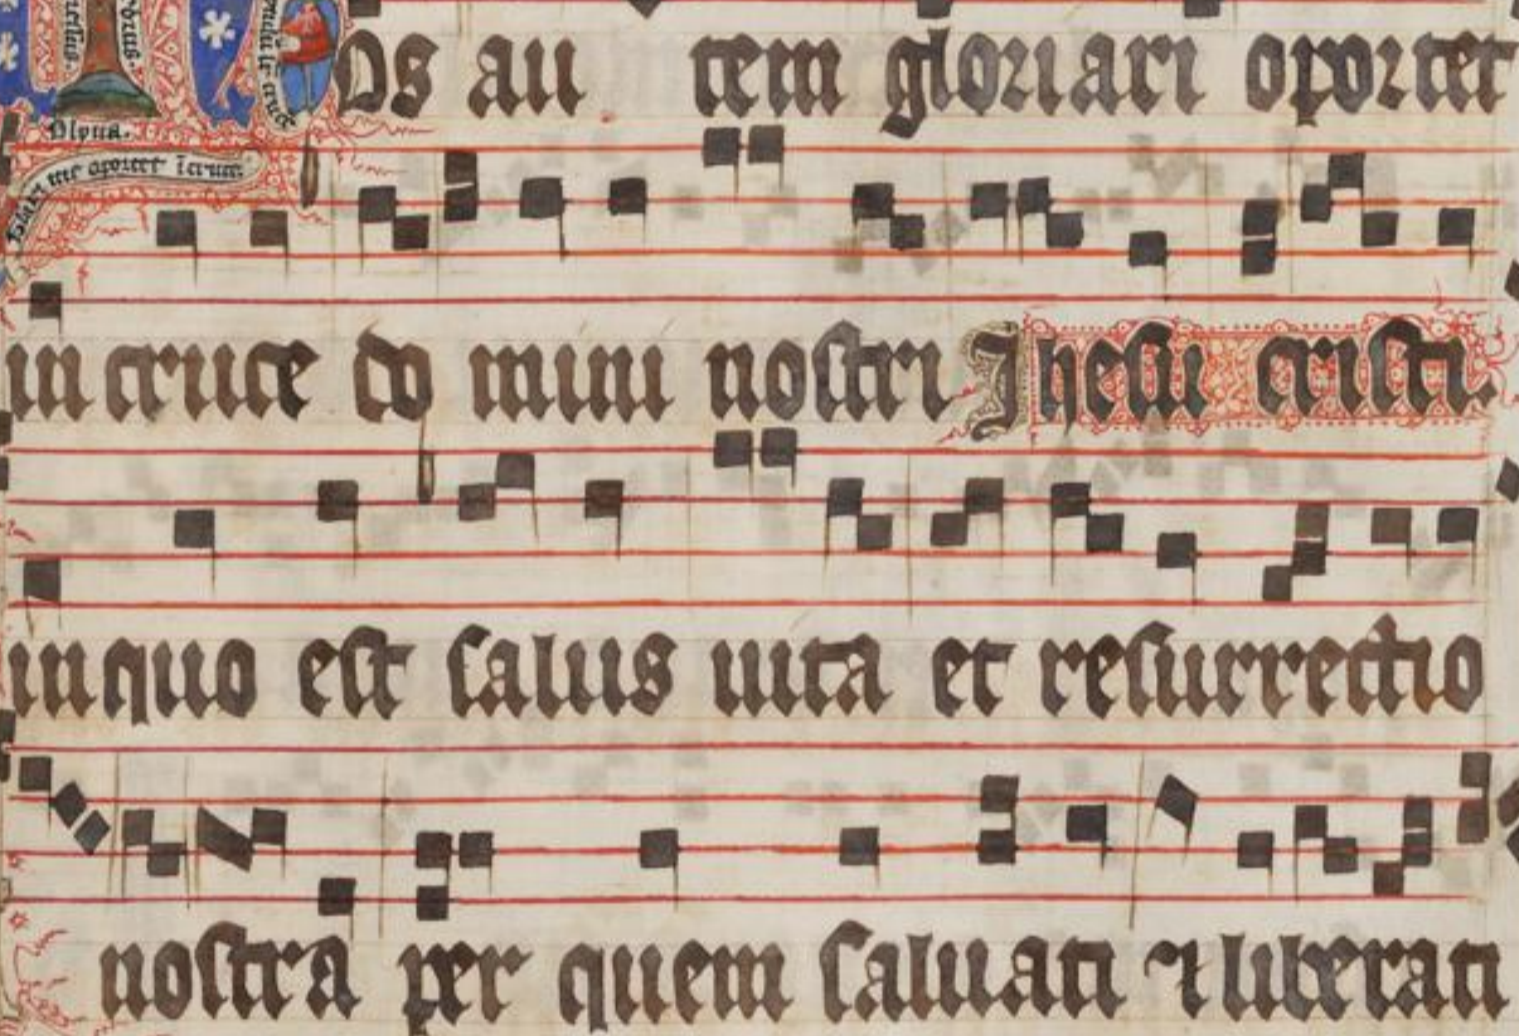 os au tem gloriari oportet
in cruce do mini nostri Jhesu cristi.
inquo est salus uita et resurrectio
nostra per quem saluati ⁊ liberati